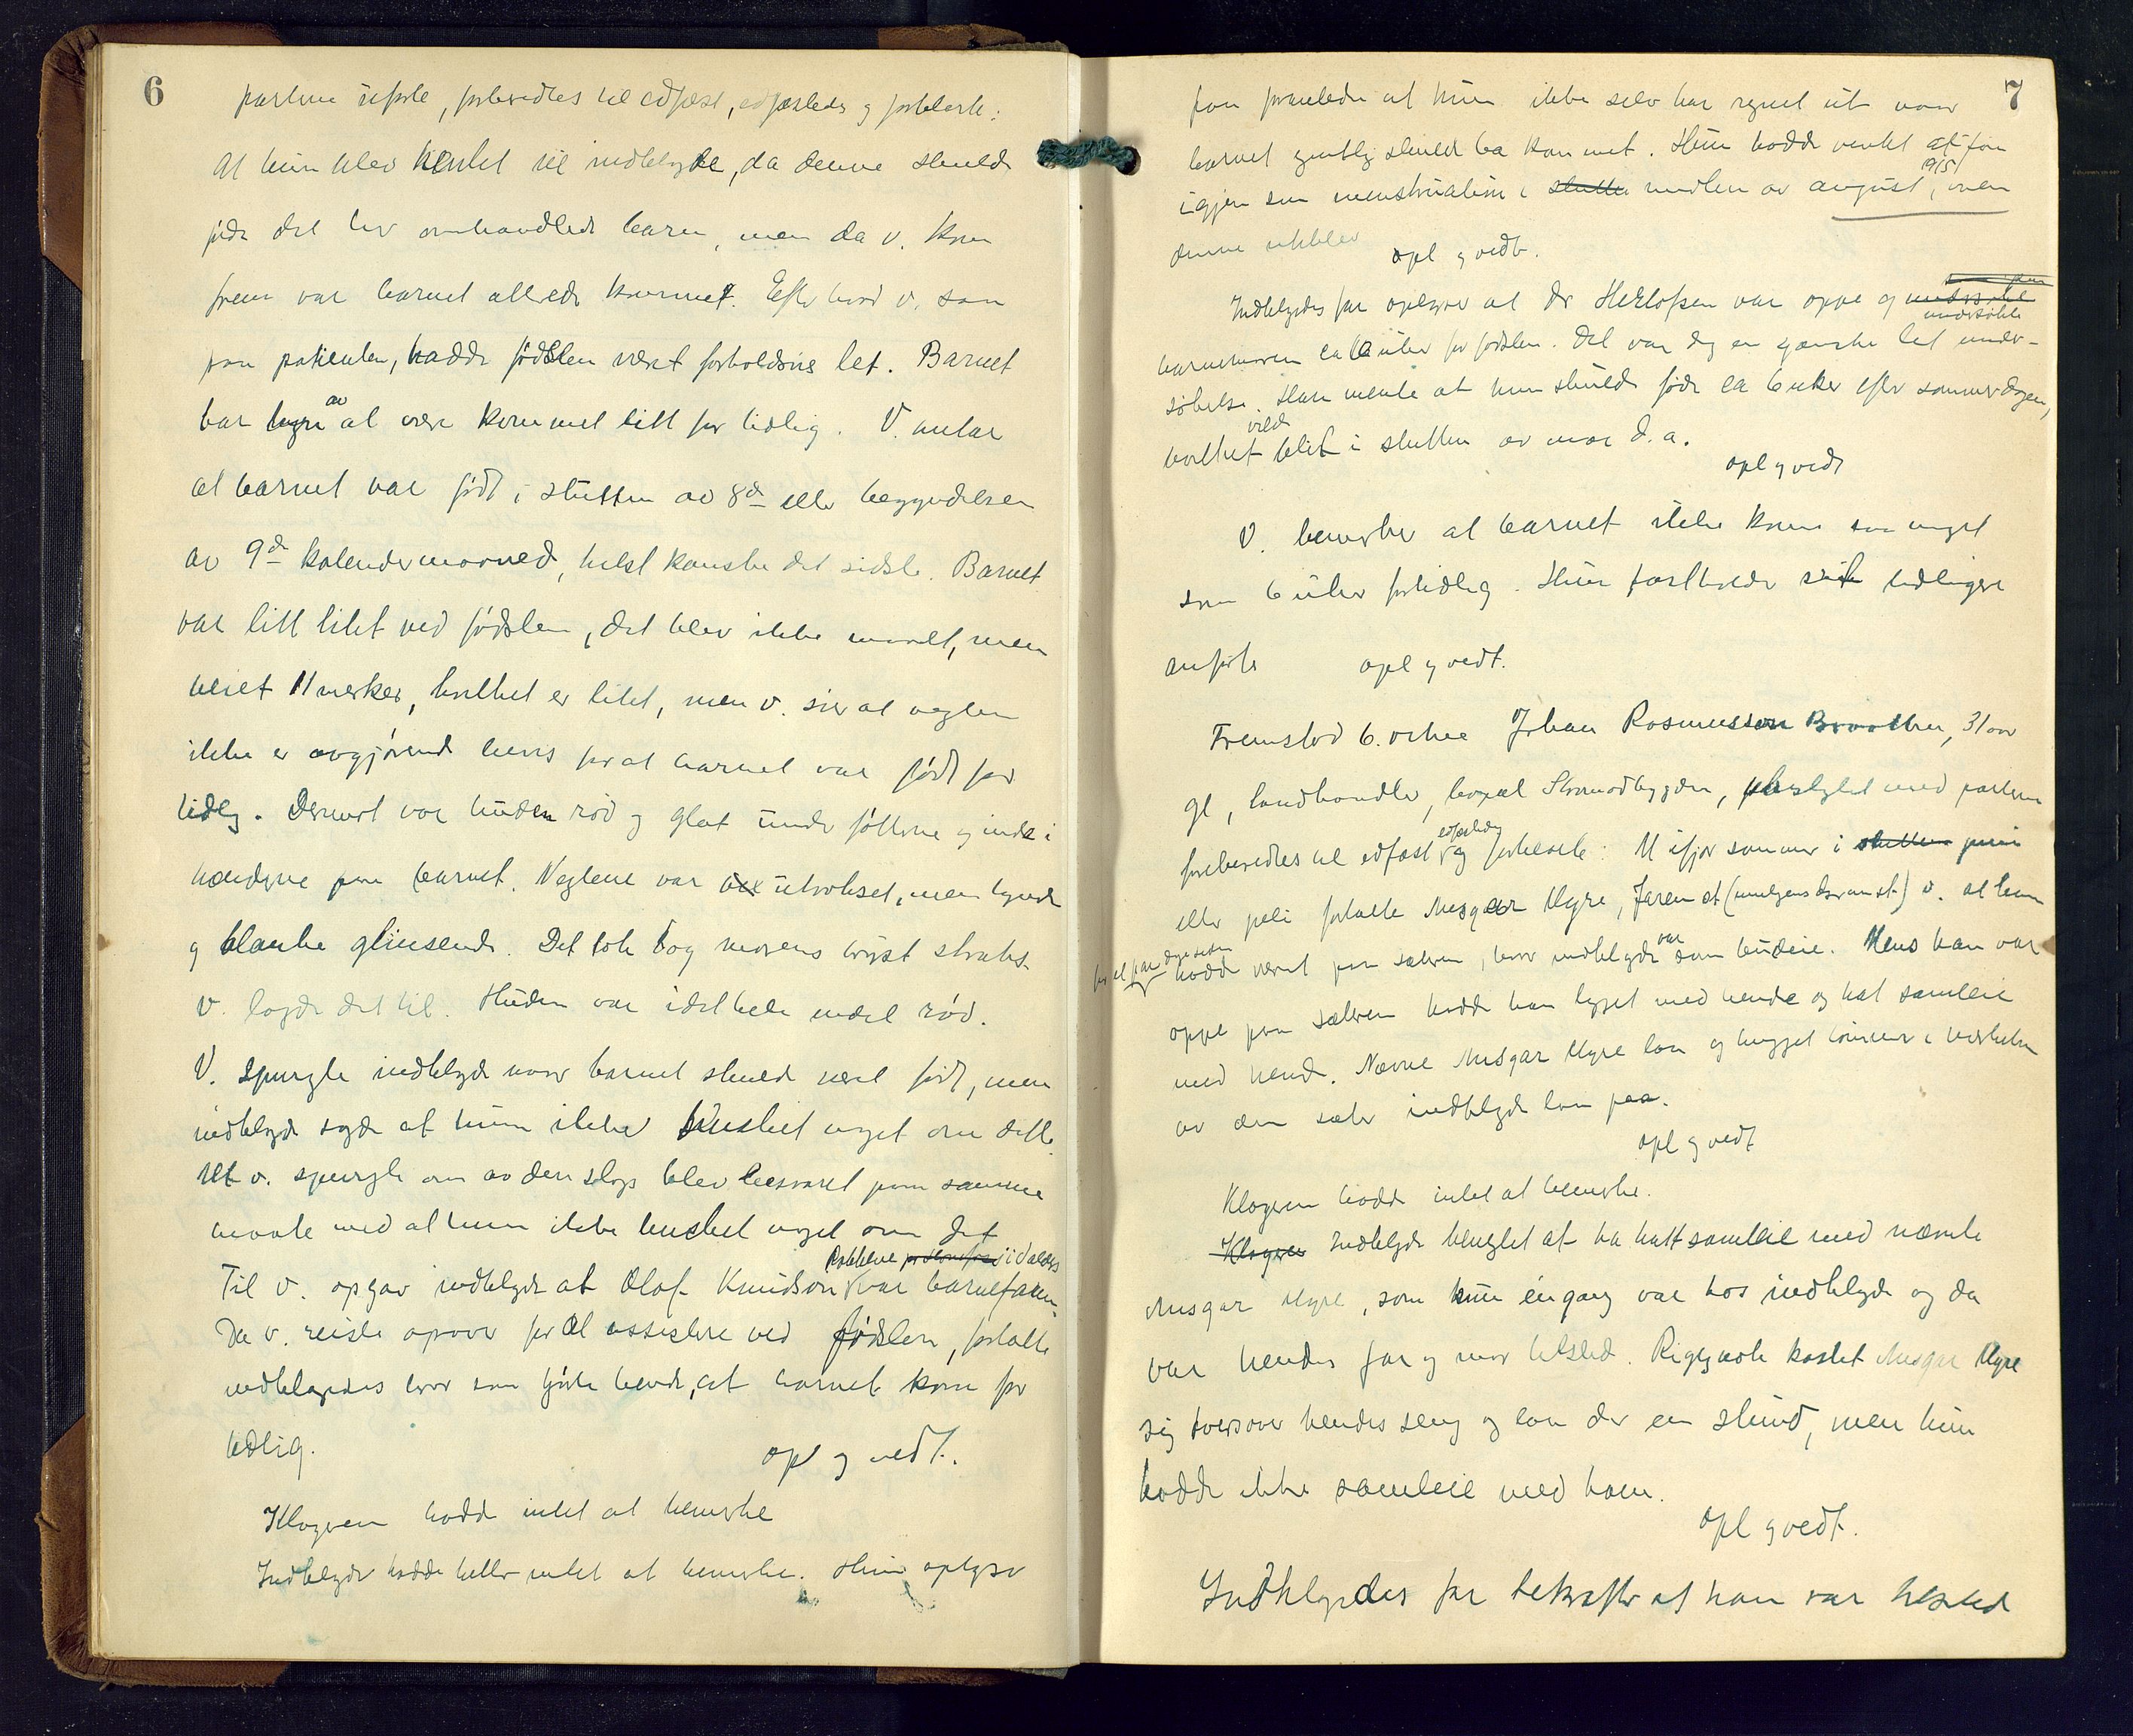 6
partene uførte, forberedtes til edfæst, edfæstedes og forklarte:
At hun blev hentet til indklagede, da denne skulde
føde det her omhandlede barn, men da v. kom
frem var barnet allerede kommet. Efter hvad v. saa
paa patienten, hadde fødselen været forholdsvis let. Barnet
bar av at være kommet litt for tidlig. V. antar
at barnet var født i slutten av 8de eller begyndelsen
av 9de kalendermaaned, helst kanske det sidste. Barnet
var litt litet ved fødslen, det blev ikke maalt, men
veiet 11 merker, hvilket er litet, men v. sier at vegten
ikke er avgjørende bevis for at barnet var født for
tidlig. Derimot var huden rød og glat under føttene og inde i
hænderne paa barnet. Neglene var utvokset, men tynde
og blanke glinsende. Det tok dog morens bryst straks
v. lagde det til. Huden var i det hele meget rød.
V. spurgte indklagede naar barnet skulde været født, men
indklagede sagde at hun ikke husket noget om dette.
Alt v. spurgte om av den slags blev besvaret paa samme
maate med at hun ikke husket noget om det
i Valders
Til v. opgav indklagede at Olaf Knudson var barnefaren.
Da v. reiste opover for at assistere ved fødslen, fortalte
indklagedes bror som kjørte hende, at barnet kom for
tidlig.
opl og vedt.
Klageren hadde intet at bemerke
Indklagede hadde heller intet at bemerke. Hun oplyser
7
paa foranledn at hun ikke selv har regnet ut naar
barnet egentlig skulde ha kommet. Hun hadde ventet at faa
1915
igjen sin menstruation i slutten midten av august, men
denne uteblev
opl og vedt.
Indklagedes far oplyser at dr Herlofsen var oppe og
undersøkte
barnemoren ca uker før fødslen. Det var dog en ganske let under-
søkelse. Han mente at hun skulde føde ca 6 uker efter sommerdagen,
vilde
hvilket blit i slutten av mai d.a.
opl og vedt
V. bemerker at barnet ikke kom saa meget
som 6 uker fortidlig. Hun fastholder sit tidligere
anførte
opl og vedt.
Fremstod 6. vidne Johan Rasmussen Braathen, 31 aar
gl, landhandler, bopæl Skrautvaalbygden, ubeslegtet med partene
edfæstedes
forberedtes til edfæst og forklarte: At ifjor sommer i slutten juni
eller juli fortalte Ansgar Myre, faren at v. at han
var
hadde været paa sætren, hvor indklagede som budeie. Mens han var
oppe paa sætren hadde han ligget med hende og hat samleie
med hende. Nævnte Ansgar Myre laa og hugget tømmer i nærheten
av den sæter indklagede laa paa.
opl og vedt
Klageren hadde intet at bemerke.
Klageren Indklagede benegtet at ha hatt samleie med nævnte
Ansgar Myre, som kun éngang var hos indklagede og da
var hendes far og mor tilsted. Rigtignok kastet Ansgar Myre
sig tversover hendes seng og laa der en stund, men hun
hadde ikke samleie med ham.
opl og vedt.
Indklagedes far bekræfter at han var tilsted